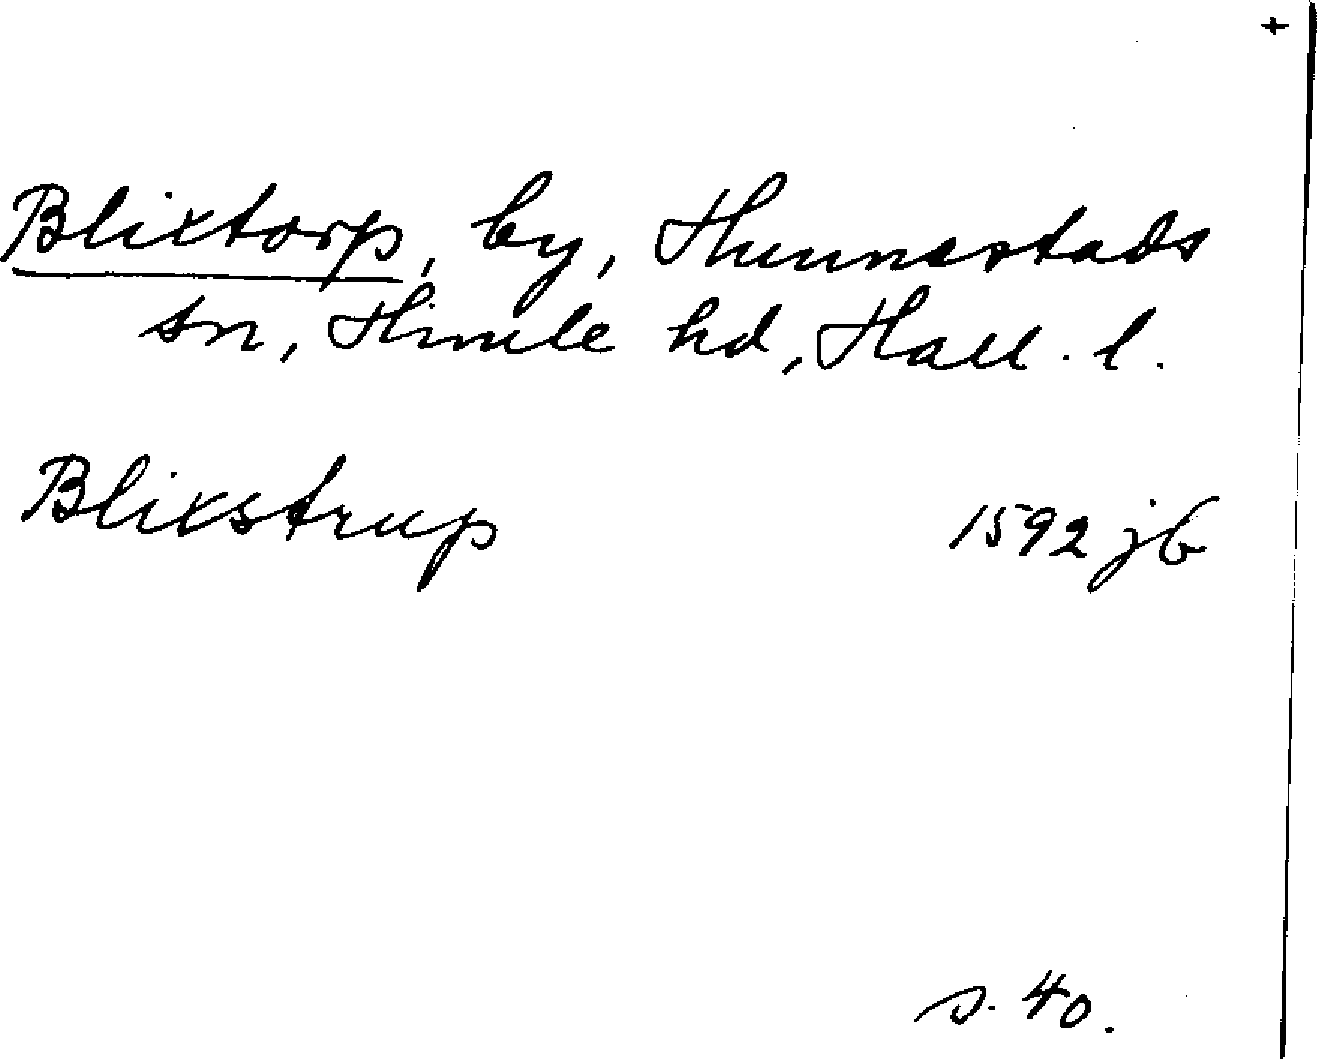 +
Blixtorp, by, Hunnestads
sn, Himle hd, Hall. l.
Blixstrup 1592 jb
s. 40.